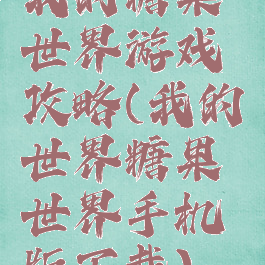 我的糖果
世界游戏
攻略(我的
世界糖果
世界手机
版下载)